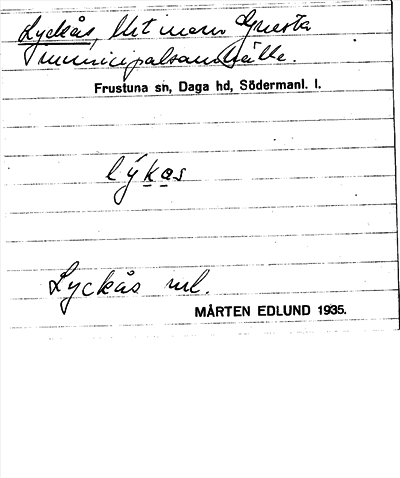 Lyckås, Utmarn Gnesta
municipalsamhälle.
Frustuna sn, Daga hd, Södermanl. l.
lýkas
Lyckås ml.
MÅRTEN EDLUND 1935.